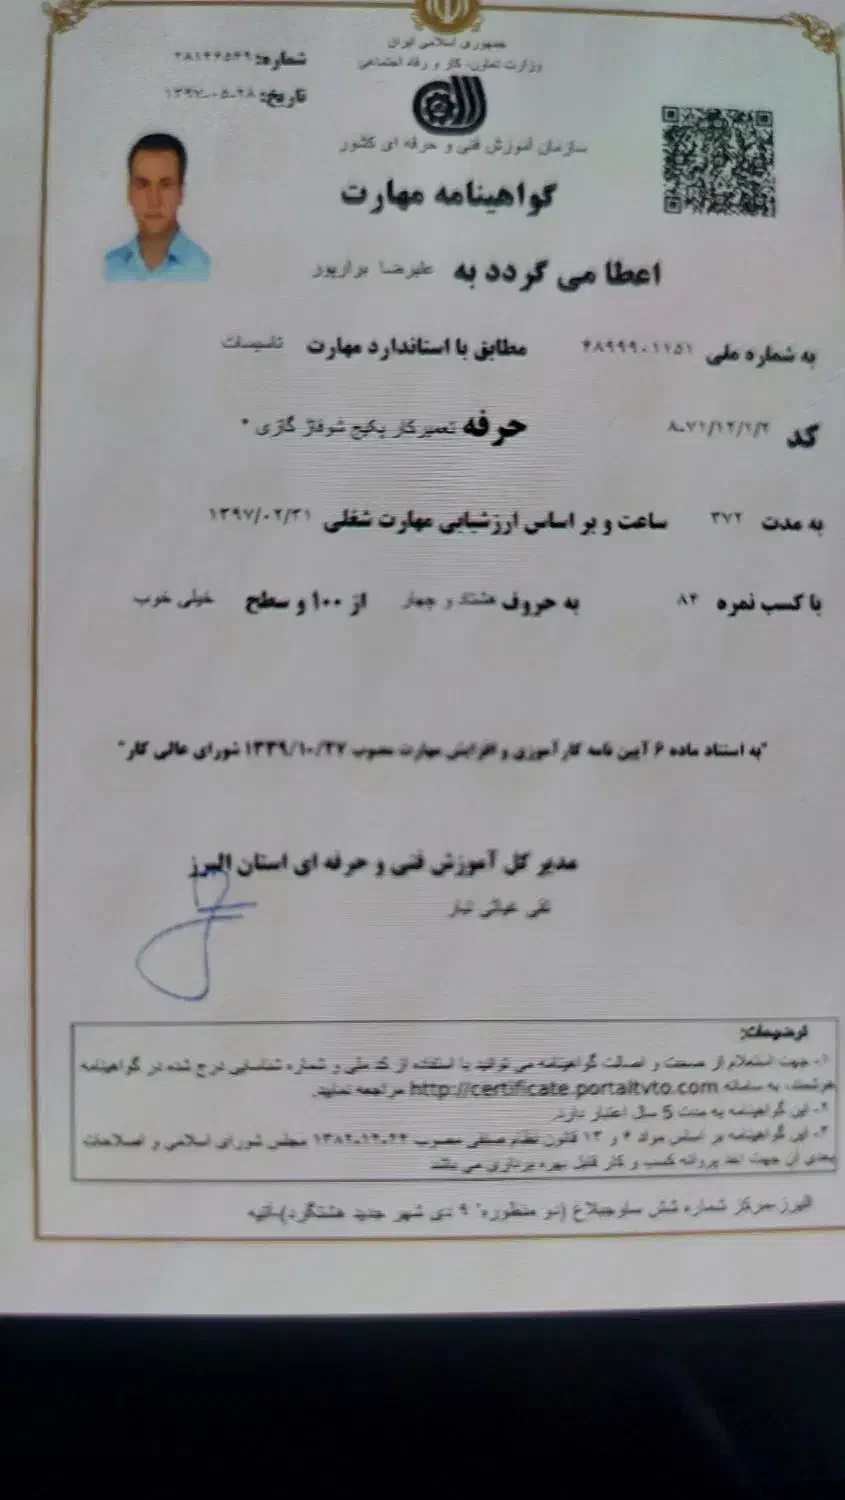 جمهوری اسلامی ایران
وزارت تعاون، کار و رفاه اجتماعی
شماره: ۲۸۱۴۶۵۴۹
تاریخ: ۱۳۹۷-۰۵-۲۸
سازمان آموزش فنی و حرفه ای کشور
گواهینامه مهارت
اعطا می گردد به علیرضا برارپور
به شماره ملی ۴۸۹۹۹۰۱۱۵۱ مطابق با استاندارد مهارت تاسیسات
کد ۸۰۷۱/۱۲/۱/۲ حرفه تعمیرکار پکیج شوفاژ گازی *
به مدت ۳۷۲ ساعت و بر اساس ارزشیابی مهارت شغلی ۱۳۹۷/۰۲/۳۱
با کسب نمره ۸۴ به حروف هشتاد و چهار از ۱۰۰ و سطح خیلی خوب
"به استناد ماده ۶ آیین نامه کارآموزی و افزایش مهارت مصوب ۱۳۳۹/۱۰/۲۷ شورای عالی کار"
مدیر کل آموزش فنی و حرفه ای استان البرز
تقی غیاثی تبار
توضیحات:
۱- جهت استعلام از صحت و اصالت گواهینامه می توانید با استفاده از کد ملی و شماره شناسایی درج شده در گواهینامه
هوشمند، به سامانه http://certificate.portaltvto.com مراجعه نمایید.
۲- این گواهینامه به مدت 5 سال اعتبار دارد.
۳- این گواهینامه بر اساس مواد ۴ و ۱۲ قانون نظام صنفی مصوب ۱۳۸۲-۱۲-۲۴ مجلس شورای اسلامی و اصلاحات
بعدی آن جهت اخذ پروانه کسب و کار قابل بهره برداری می باشد
البرز-مرکز شماره شش ساوجبلاغ (دو منظوره ۹ دی شهر جدید هشتگرد)-آتیه